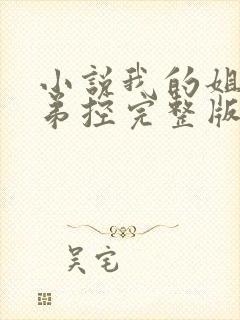 小说我的姐
弟控完整版
吴宅